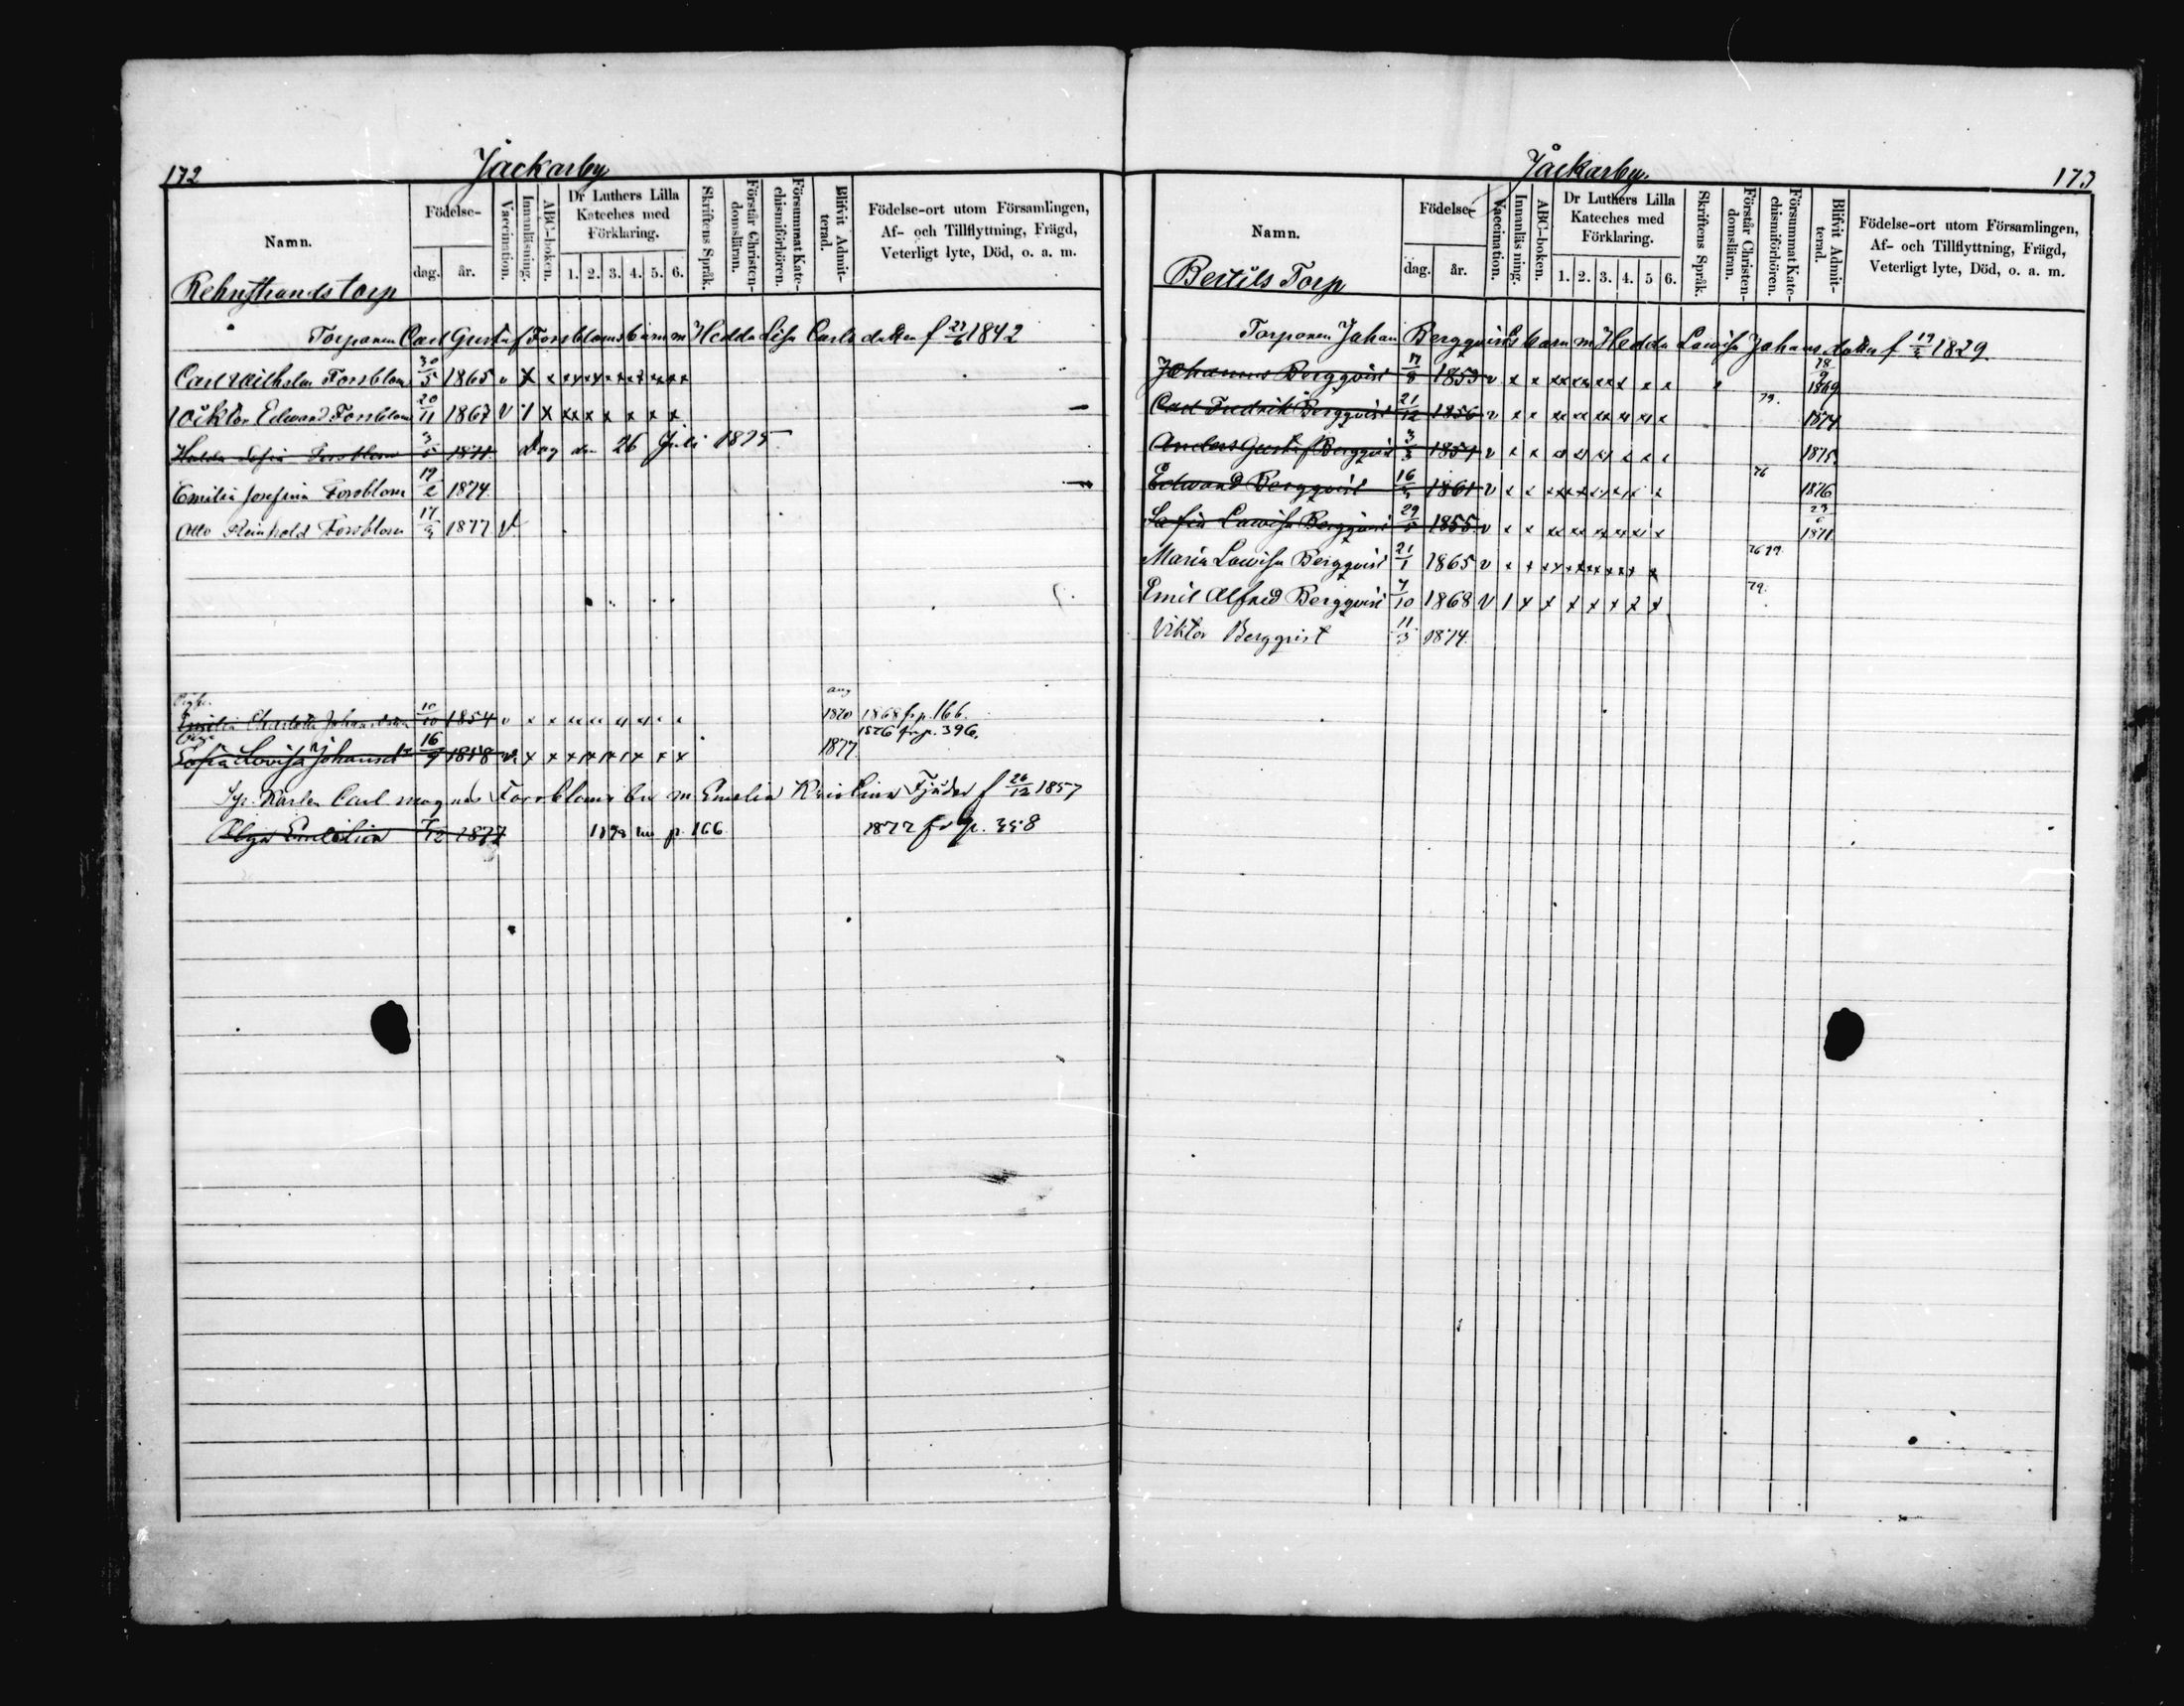 172
Jackarby
Namn.
Födelse-
dag.
år.
Vaccination.
Innanläsning.
ABC-boken.
Dr Luthers Lilla
Kateches med
Förklaring.
1. 2. 3. 4. 5. 6.
Skriftens Språk.
Förstår Christen-
domsläran.
Försummat Kate-
chismiförhören.
Blifvit Admit-
terad.
Födelse-ort utom Församlingen,
Af- och Tillflyttning, Frägd,
Veterligt lyte, Död, o. a. m.
Rehnstrands torp
Torparen Carl Gustaf Forsbloms barn m Hedda Lisa Carls dotter f 1842
Carl Wilhelm Forsblom 30/5 1865 v X x x x x x x x x x
Wiktor Edward Forsblom 20/11 1867 v 1 X x x x x x x x
Hulda Sofia Forsblom 3/5 1871. Dog den 26 Juli 1875
Emilia Josefina Forsblom 17/2 1874.
Otto Reinhold Forsblom 17/9 1877 v
aug
Emilia Charlotta Johansdotter 10/10 1854 v x x x x x x x x 1870 1868 fr p. 166.
1876 fr p. 396.
Sofia Lovisa Johansd 16/9 1858 v x x x x x x x x 1877.
Carl Magnus Forsbloms m Emelia Kristina Fjäder f 26/12 1857
Olga Emilia 7/12 1877 1878 p. 166 1877 fr p. 358
Jackarby.
173
Namn.
Födelse-
dag.
år.
Vaccination.
Innanläsning.
ABC-boken.
Dr Luthers Lilla
Kateches med
Förklaring.
1. 2. 3. 4. 5 6.
Skriftens Språk.
Förstår Christen-
domsläran.
Försummat Kate-
chismiförhören.
Blifvit Admit-
terad.
Födelse-ort utom Församlingen,
Af- och Tillflyttning, Frägd,
Veterligt lyte, Död, o. a. m.
Bertils Torp
Torparen Johan Bergqvists barn m Hedda Lowisa Johans dotter f 1829.
Johannes Bergqvist 17/8 1853 v x x x x x x x x 1869
Carl Fredrik Bergqvist 21/12 1856 v x x x x x x x x 1874
Anders Gustaf Bergqvist v x x x x x x x x 1875.
Edward Bergqvist 1861 v x x x x x x x x 76 1876
Sofia Lowisa Bergqvist 1855. v x x x x x x x x 1871
Maria Lowisa Bergqvist 21/1 1865 v x x x x x x x x 76 77.
Emil Alfred Bergqvist 7/10 1868 v 1 x x x x x x x 79.
Viktor Bergqvist 11/3 1874.